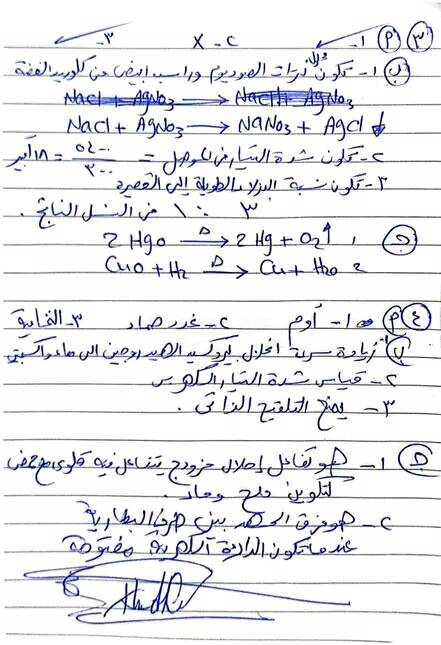 ٣ P ١- ✓ ٢- X ٣- ✓
ب ١- تكون نترات الصوديوم وراسب ابيض من كلوريد الفضة
NaCl + AgNo3 → NaNo3 + AgCl ↓
٢- تكون شدة التيار فى الموصل = ٥٤٠٠ / ٣٠٠ = ١٨ أمبير
٣- تكون نسبة البذلاء الطويلة إلى القصيرة
٣ : ١ من النسل الناتج.
ج ١ 2 Hgo →Δ 2 Hg + O2 ↑
Cuo + H2 →Δ Cu + H2o 2
٤ P ١- أوم ٢- غدد صماء ٣- الثمانية
ب ١- زيادة سرعة انحلال بيروكسيد الهيدروجين الى ماء واكسجين
٢- قياس شدة التيار الكهربى
٣- يمنع التلقيح الذاتى.
ج ١- هو تفاعل إحلال مزدوج يتفاعل فيه قلوى مع حمض
لتكوين ملح وماء.
٢- هو فرق الجهد بين طرفى البطارية
عندما تكون الدائرة الكهربية مفتوحة